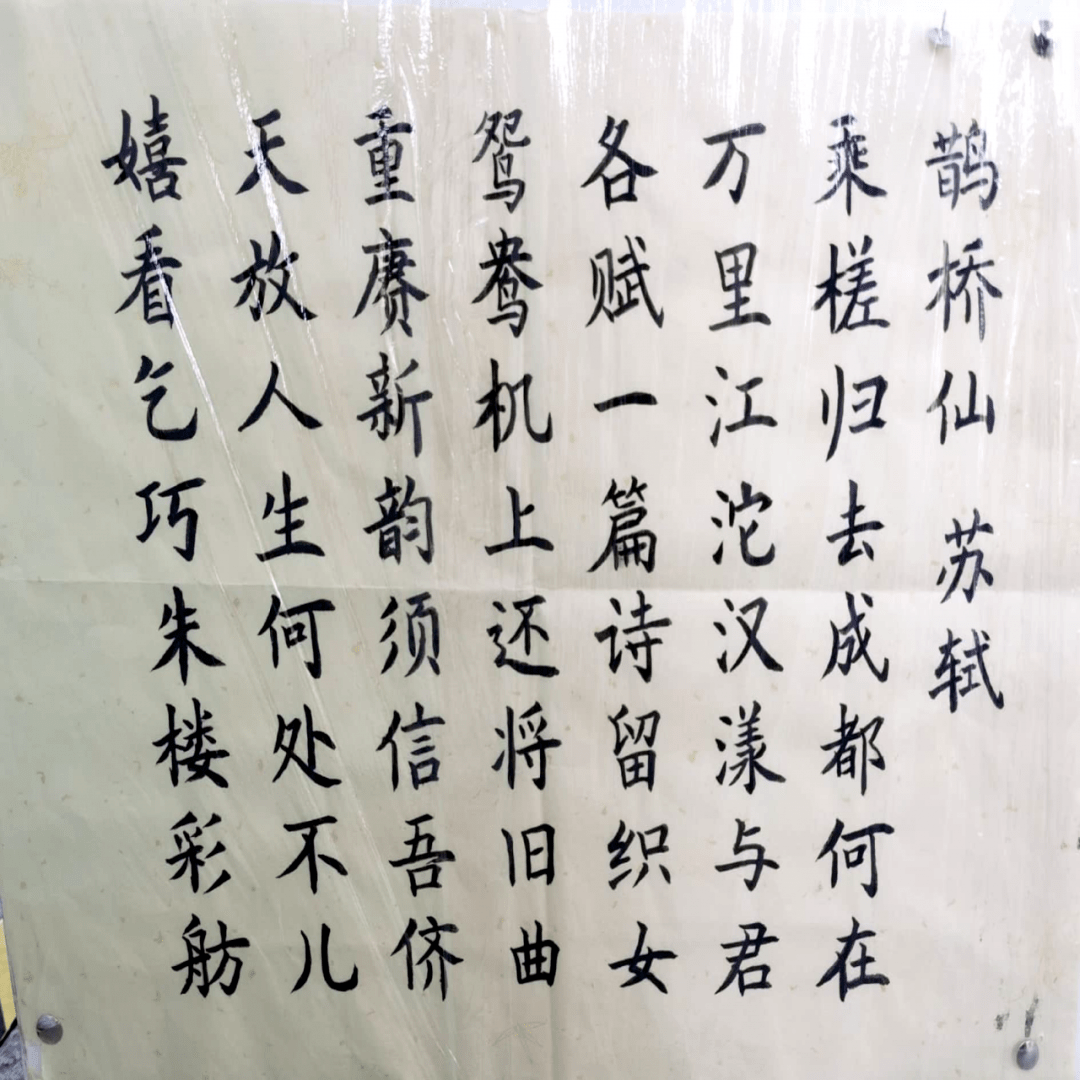 鹊桥仙 苏轼
乘槎归去成都何在
万里江沱汉漾与君
各赋一篇诗留织女
鸳鸯机上还将旧曲
重赓新韵须信吾侪
天放人生何处不儿
嬉看乞巧朱楼彩舫